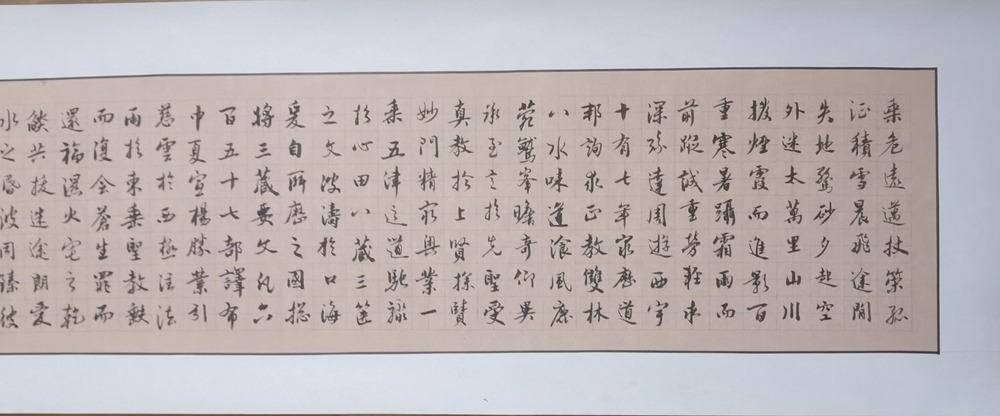 乘危遠邁杖策孤
征積雪晨飛途間
失地驚砂夕起空
外迷天萬里山川
撥煙霞而進影百
重寒暑躡霜雨而
前蹤誠重勞輕求
深願達周遊西宇
十有七年窮歷道
邦詢求正教雙林
八水味道飡風鹿
菀鷲峯瞻奇仰異
承至言於先聖受
真教於上賢探賾
妙門精窮奧業一
乘五津之道馳驟
於心田八藏三篋
之文波濤於口海
爰自所歷之國揔
將三藏要文凡六
百五十七部譯布
中夏宣楊勝業引
慈雲於西極注法
雨於東垂聖教缺
而復全蒼生罪而
還福濕火宅之乾
燄共拔迷途朗愛
水之昏波同臻彼